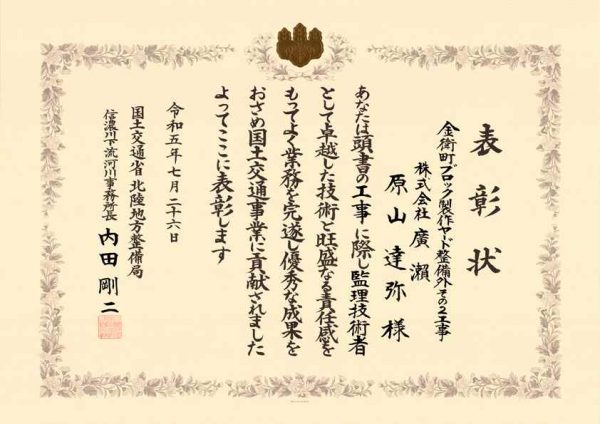 表彰状
金衛町ブロック製作ヤード整備外その2工事
株式会社 廣瀬
原山達弥様
あなたは頭書の工事に際し監理技術者
として卓越した技術と旺盛なる責任感を
もってよく業務を完遂し優秀な成果を
おさめ国土交通事業に貢献されました
よってここに表彰します
令和五年七月二十六日
国土交通省 北陸地方整備局
信濃川下流河川事務所長 内田剛二